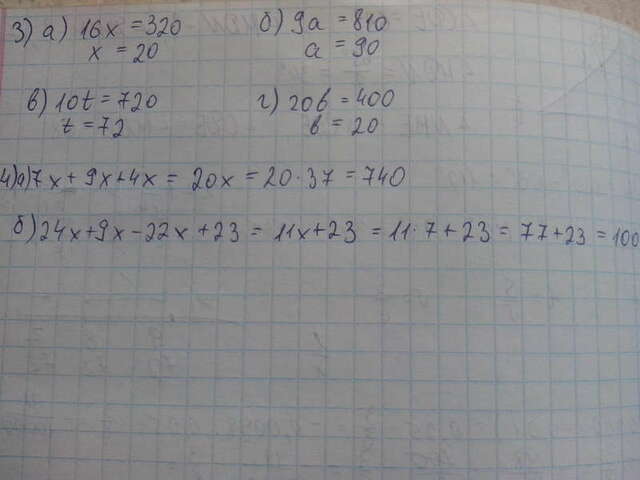 3) а) 16x = 320 б) 9a = 810
x = 20 a = 90
в) 10t = 720 г) 20b = 400
t = 72 b = 20
4) а) 7x + 9x + 4x = 20x = 20·37 = 740
б) 24x + 9x - 22x + 23 = 11x + 23 = 11·7 + 23 = 77 + 23 = 100